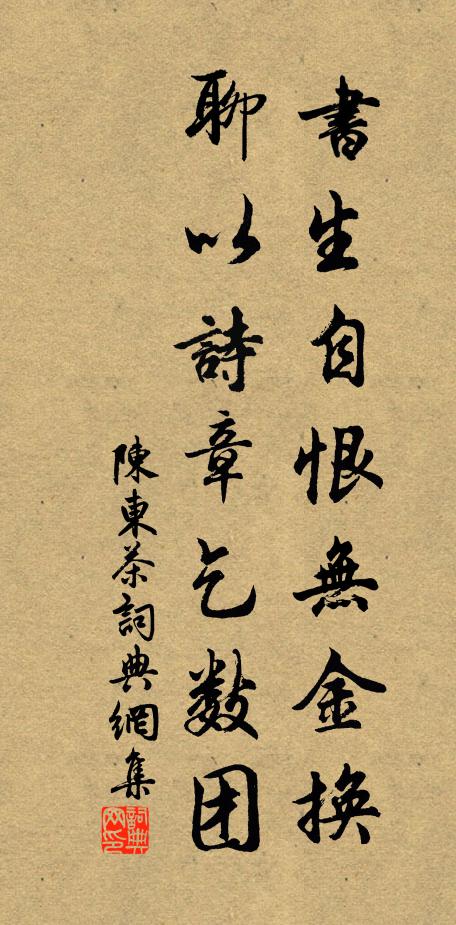 書生自恨無金換
聊以詩章乞数团
陳東茶詞典網集
詞典网印